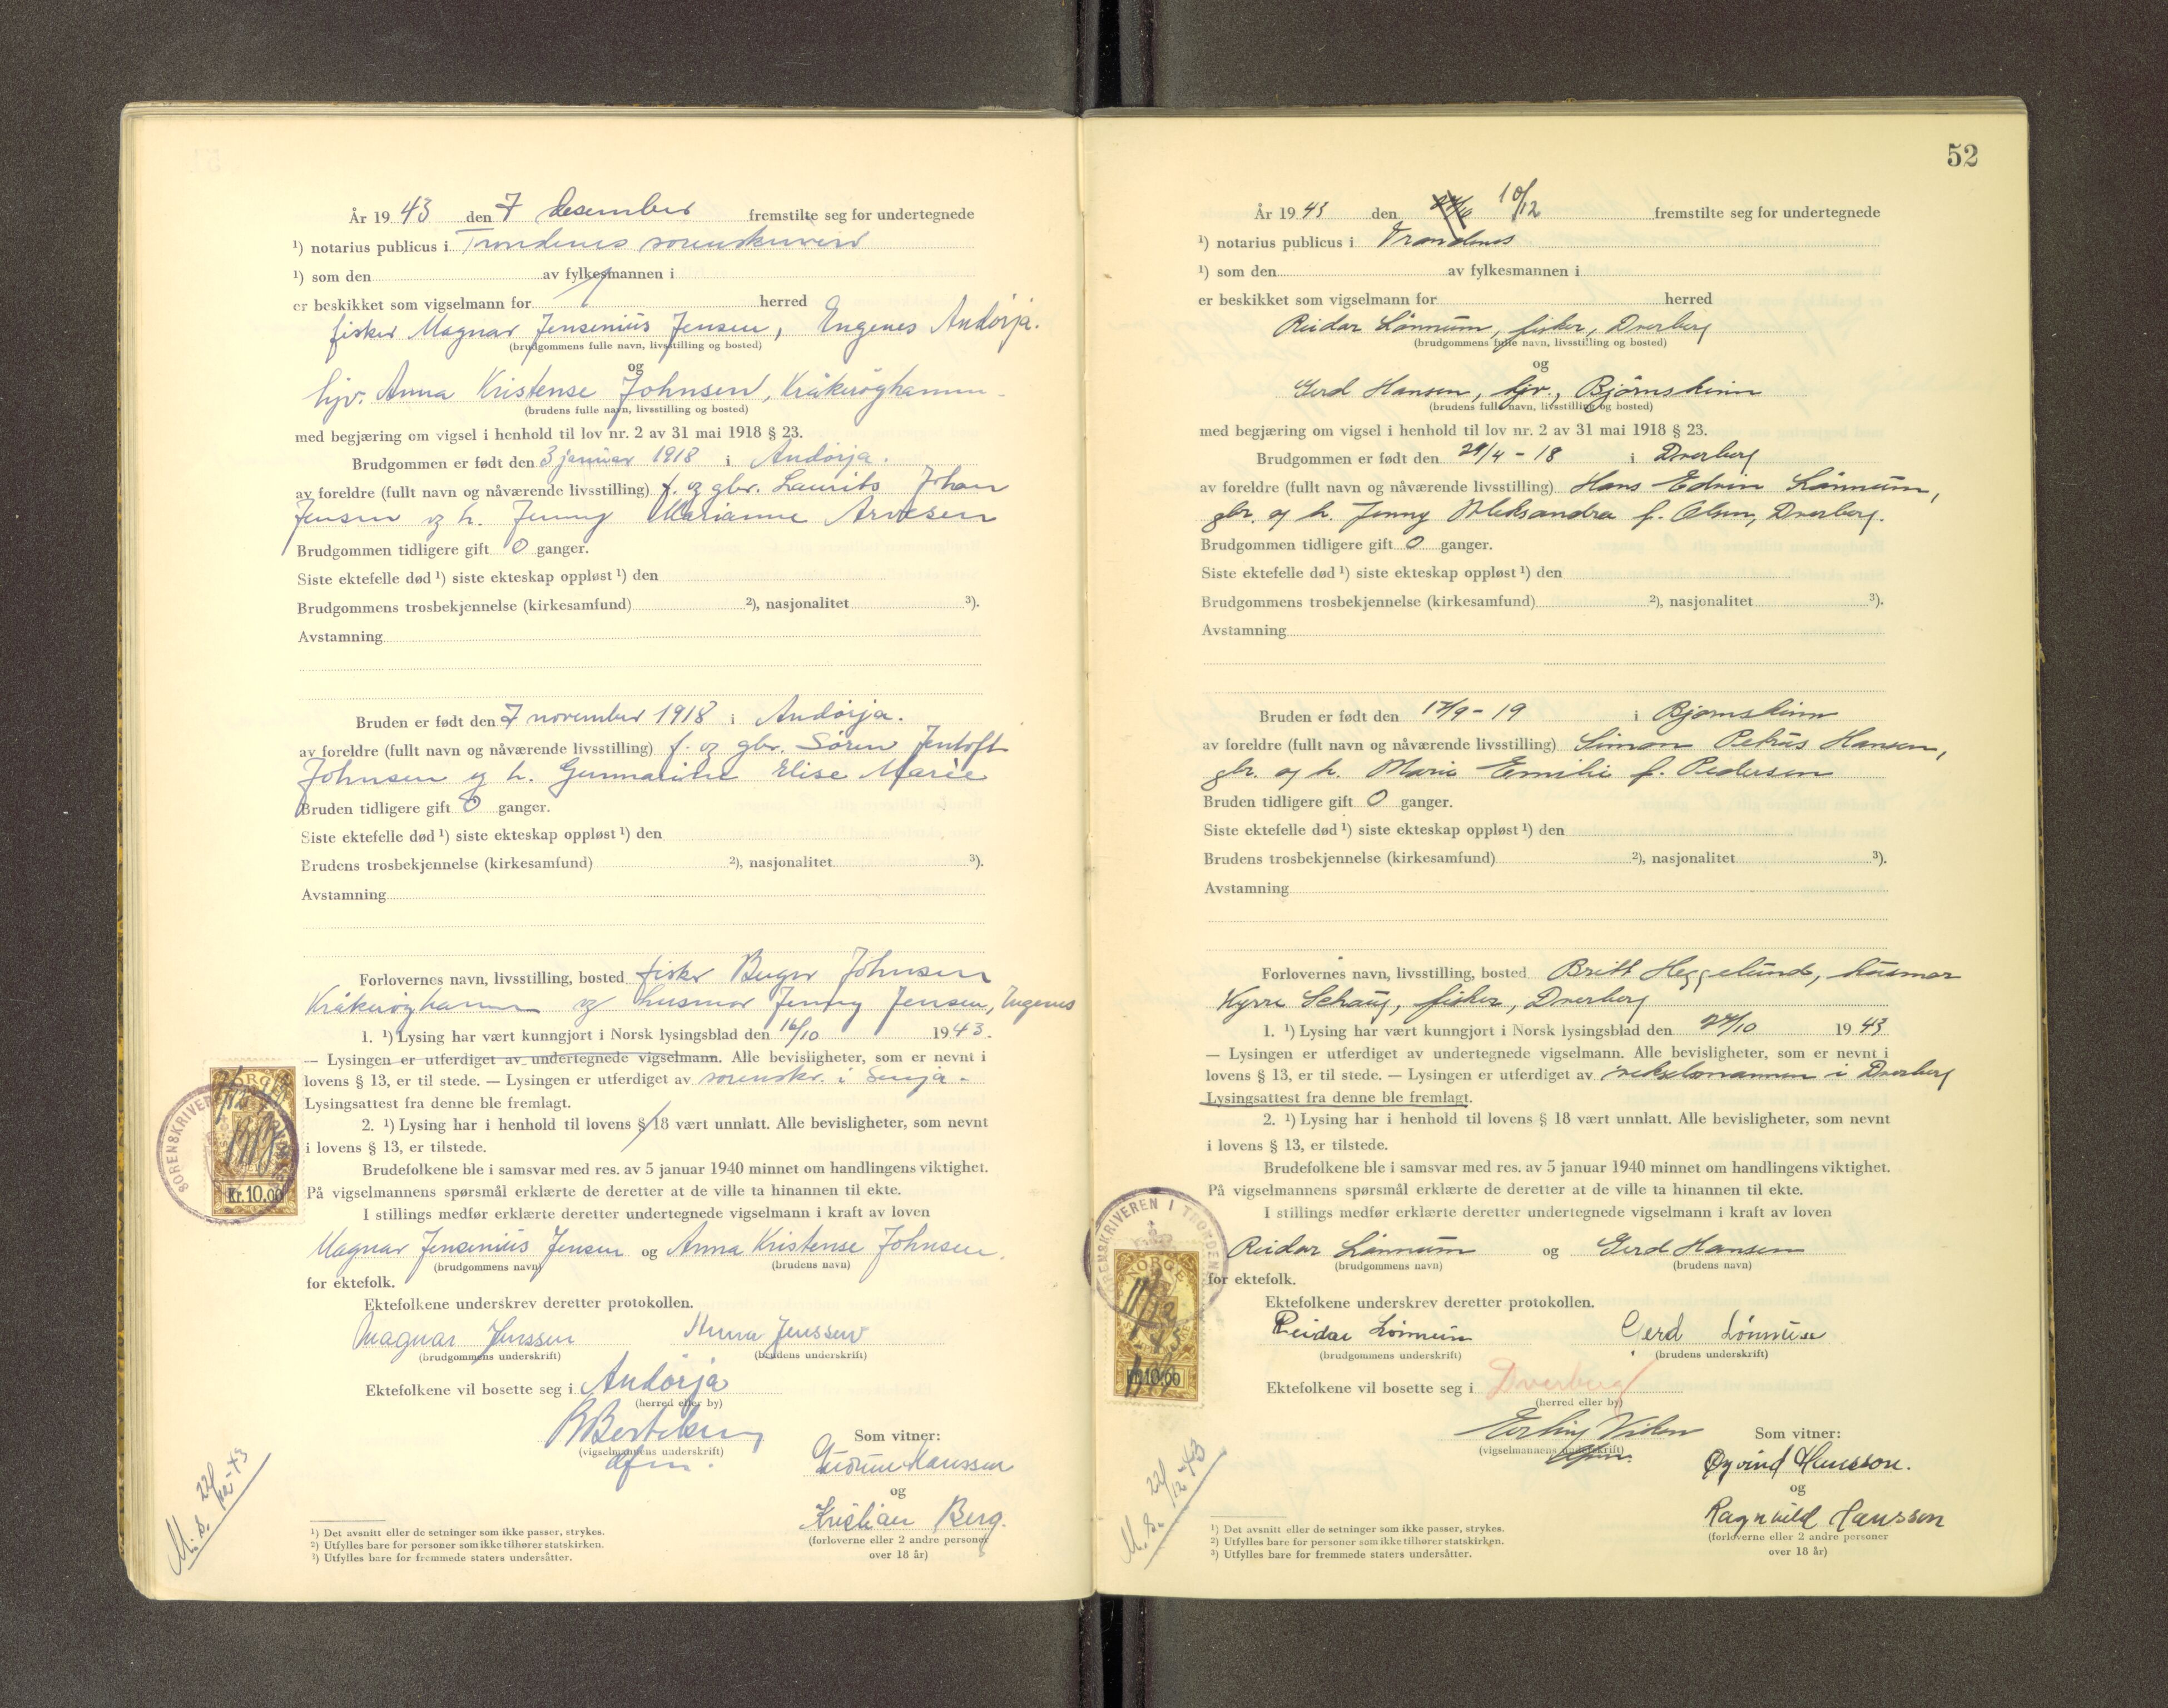 År 1943 den 7 desember fremstilte seg for undertegnede
¹) notarius publicus i Trondenes sorenskriveri
¹) som den av fylkesmannen i
er beskikket som vigselmann for herred
fisker Magnar Jensenius Jensen, Engenes Andørja.
(brudgommens fulle navn, livsstilling og bosted)
og
hjv. Anna Kristense Johnsen, Kråkerøghamn
(brudens fulle navn, livsstilling og bosted)
med begjæring om vigsel i henhold til lov nr. 2 av 31 mai 1918 § 23.
Brudgommen er født den 3 januar 1918 i Andørja.
av foreldre (fullt navn og nåværende livsstilling) f. og gbr. Laurits Johan
Jensen og h. Jenny Marianne Arvesen
Brudgommen tidligere gift 0 ganger.
Siste ektefelle død ¹) siste ekteskap oppløst ¹) den
Brudgommens trosbekjennelse (kirkesamfund) ²), nasjonalitet ³).
Avstamning
Bruden er født den 7 november 1918 i Andørja.
av foreldre (fullt navn og nåværende livsstilling) f. og gbr. Søren Jentoft
Johnsen og h. Elise Marie
Bruden tidligere gift 0 ganger.
Siste ektefelle død ¹) siste ekteskap oppløst ¹) den
Brudens trosbekjennelse (kirkesamfund) ²), nasjonalitet ³).
Avstamning
Forlovernes navn, livsstilling, bosted fisker Johnsen
Kråkerøghamn og husmor Jenny Jensen, Engenes
1. ¹) Lysing har vært kunngjort i Norsk lysingsblad den 16/10 1943.
— Lysingen er utferdiget av undertegnede vigselmann. Alle bevisligheter, som er nevnt i
lovens § 13, er til stede. — Lysingen er utferdiget av sorenskr. i Senja.
Lysingsattest fra denne ble fremlagt.
2. ¹) Lysing har i henhold til lovens § 18 vært unnlatt. Alle bevisligheter, som nevnt
i lovens § 13, er tilstede.
Brudefolkene ble i samsvar med res. av 5 januar 1940 minnet om handlingens viktighet.
På vigselmannens spørsmål erklærte de deretter at de ville ta hinannen til ekte.
I stillings medfør erklærte deretter undertegnede vigselmann i kraft av loven
Magnar Jensenius Jensen og Anna Kristense Johnsen.
(brudgommens navn) (brudens navn)
for ektefolk.
Ektefolkene underskrev deretter protokollen.
Magnar Jenssen Anna Jenssen
(brudgommens underskrift) (brudens underskrift)
Ektefolkene vil bosette seg i Andørja
(herred eller by)
Som vitner:
(vigselmannens underskrift)
Hanssen
og
Kristian Berg.
(forloverne eller 2 andre personer
over 18 år)
¹) Det avsnitt eller de setninger som ikke passer, strykes.
²) Utfylles bare for personer som ikke tilhører statskirken.
³) Utfylles bare for fremmede staters undersåtter.
SORENSKRIVEREN
NORGE
Kr. 10.00
M. s. 22/12-43
52
År 1943 den 10/12 fremstilte seg for undertegnede
¹) notarius publicus i Trondenes
¹) som den av fylkesmannen i
er beskikket som vigselmann for herred
Reidar Lønnum, fisker, Dverberg
(brudgommens fulle navn, livsstilling og bosted)
og
Gerd Hansen, hjv., Bjørnskinn
(brudens fulle navn, livsstilling og bosted)
med begjæring om vigsel i henhold til lov nr. 2 av 31 mai 1918 § 23.
Brudgommen er født den 29/4 - 18 i Dverberg
av foreldre (fullt navn og nåværende livsstilling) Hans Edvin Lønnum,
gbr. og h. Jenny Aleksandra f. Olsen, Dverberg.
Brudgommen tidligere gift 0 ganger.
Siste ektefelle død ¹) siste ekteskap oppløst ¹) den
Brudgommens trosbekjennelse (kirkesamfund) ²), nasjonalitet ³).
Avstamning
Bruden er født den /9 - 19 i Bjørnskinn
av foreldre (fullt navn og nåværende livsstilling) Simon Petrus Hansen,
gbr. og h. Marie Emilie f. Pedersen
Bruden tidligere gift 0 ganger.
Siste ektefelle død ¹) siste ekteskap oppløst ¹) den
Brudens trosbekjennelse (kirkesamfund) ²), nasjonalitet ³).
Avstamning
Forlovernes navn, livsstilling, bosted Britt Heggelund, husmor
Kyrre Schaug, fisker, Dverberg
1. ¹) Lysing har vært kunngjort i Norsk lysingsblad den /10 1943
— Lysingen er utferdiget av undertegnede vigselmann. Alle bevisligheter, som er nevnt i
lovens § 13, er til stede. — Lysingen er utferdiget av vekselsmannen i Dverberg
Lysingsattest fra denne ble fremlagt.
2. ¹) Lysing har i henhold til lovens § 18 vært unnlatt. Alle bevisligheter, som nevnt
i lovens § 13, er tilstede.
Brudefolkene ble i samsvar med res. av 5 januar 1940 minnet om handlingens viktighet.
På vigselmannens spørsmål erklærte de deretter at de ville ta hinannen til ekte.
I stillings medfør erklærte deretter undertegnede vigselmann i kraft av loven
Reidar Lønnum og Gerd Hansen
(brudgommens navn) (brudens navn)
for ektefolk.
Ektefolkene underskrev deretter protokollen.
Reidar Lönnum Gerd Lönnum
(brudgommens underskrift) (brudens underskrift)
Ektefolkene vil bosette seg i Dverberg
(herred eller by)
Erling
Som vitner:
(vigselmannens underskrift)
Øyvind Hansson.
og
Ragnvild Hansson
(forloverne eller 2 andre personer
over 18 år)
¹) Det avsnitt eller de setninger som ikke passer, strykes.
²) Utfylles bare for personer som ikke tilhører statskirken.
³) Utfylles bare for fremmede staters undersåtter.
SORENSKRIVEREN I TRONDENES
NORGE
10.00
M. s. 22/12-43